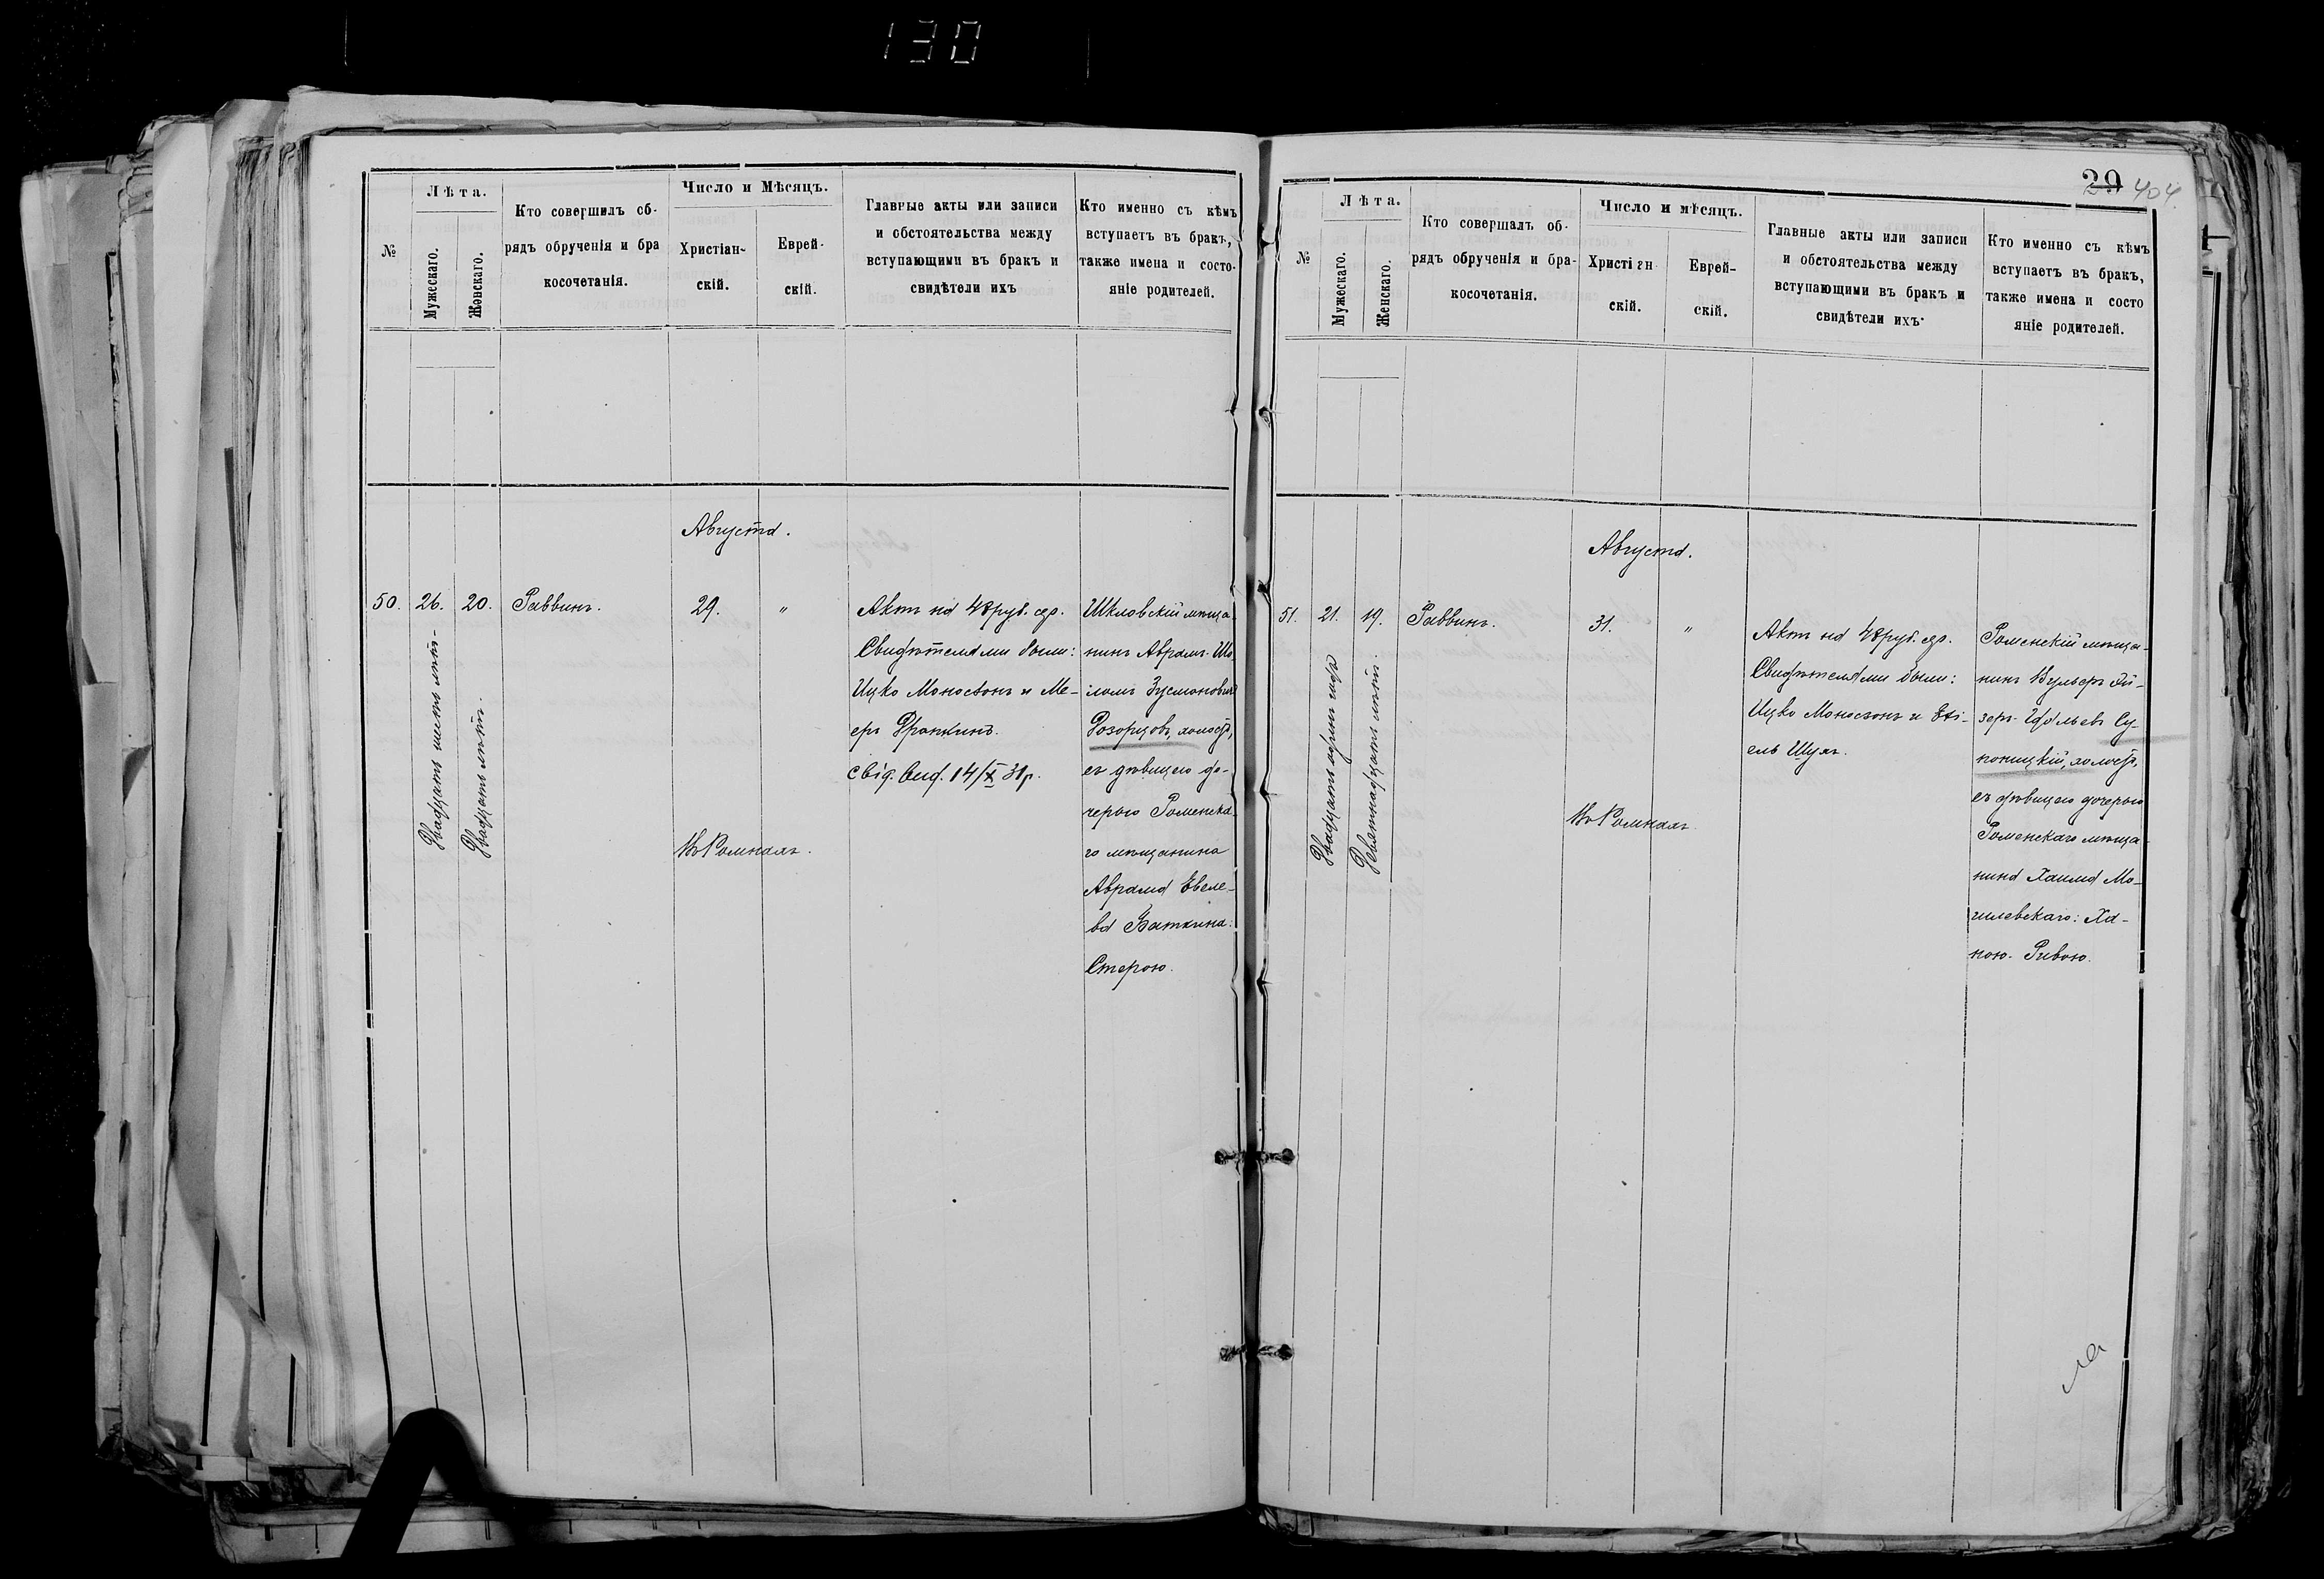 130
№
Лѣта.
Мужескаго.
Женскаго.
Кто совершилъ об-
рядъ обрученія и бра
косочетанія.
Число и Мѣсяцъ.
Христіан-
скій.
Еврей-
скій.
Главные акты или записи
и обстоятельства между
вступающими въ бракъ и
свидѣтели ихъ
Кто именно съ кѣмъ
вступаетъ въ бракъ,
также имена и состо-
яніе родителей.
Августа.
50.
26.
Двадцать шесть лѣтъ
20.
Двадцать лѣтъ.
Раввинъ.
29.
"
Въ Ромнахъ.
Актъ на 48 руб. сер.
Свидѣтелями были:
Ицко Моносзонъ и Ме-
еръ Франкинъ.
свід. вид. 14/X 31р.
Шкловскій мѣща-
нинъ Аврамъ-Шо-
ломъ Зусмановичъ
холостъ,
съ дѣвицею до-
черью Роменска-
го мѣщанина
Аврама Евеле-
ва Баткина:
Стерою.
29 404
№
Лѣта.
Мужескаго.
Женскаго.
Кто совершалъ об-
рядъ обрученія и бра-
косочетанія.
Число и мѣсяцъ.
Христіан
скій.
Еврей-
скій.
Главные акты или записи
и обстоятельства между
вступающими въ бракъ и
свидѣтели ихъ.
Кто именно съ кѣмъ
вступаетъ въ бракъ,
также имена и состо
яніе родителей.
Августа.
51.
21.
Двадцать одинъ годъ
19.
Девятнадцать лѣтъ.
Раввинъ.
31.
"
Въ Ромнахъ.
Актъ на 48 руб. сер.
Свидѣтелями были:
Ицко Моносзонъ и Ехі-
ель Шулъ.
Роменскій мѣща-
нинъ Вульфъ Лей-
зеръ
холостъ,
съ дѣвицею дочерью
Роменскаго мѣща-
нина Хаима Мо-
гилевскаго: Ха-
ною-Ривою.